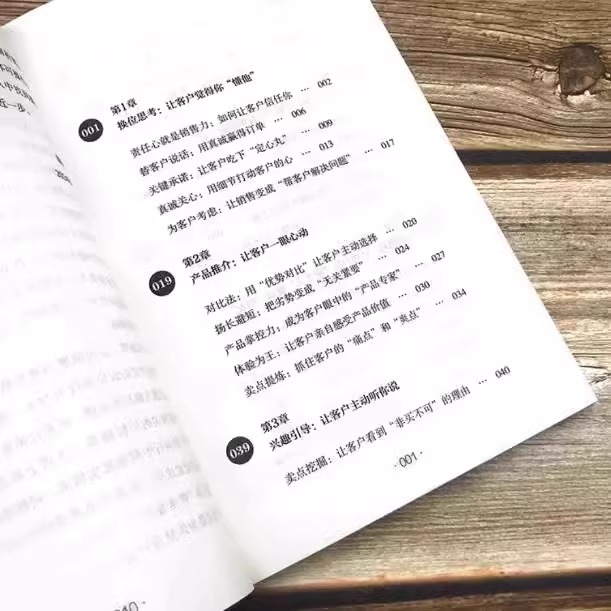 第1章
001
换位思考：让客户觉得你“懂他”
责任心就是销售力：如何让客户信任你 … 002
替客户说话：用真诚赢得订单 … 006
关键承诺：让客户吃下“定心丸” … 009
真诚关心：用细节打动客户的心 … 013
为客户考虑：让销售变成“帮客户解决问题” … 017
第2章
019
产品推介：让客户一眼心动
对比法：用“优势对比”让客户主动选择 … 020
扬长避短：把劣势变成“无关紧要” … 024
产品掌控力：成为客户眼中的“产品专家” … 027
体验为王：让客户亲自感受产品价值 … 030
卖点提炼：抓住客户的“痛点”和“爽点” … 034
第3章
039
兴趣引导：让客户主动听你说
卖点挖掘：让客户看到“非买不可”的理由 … 040
· 001 ·